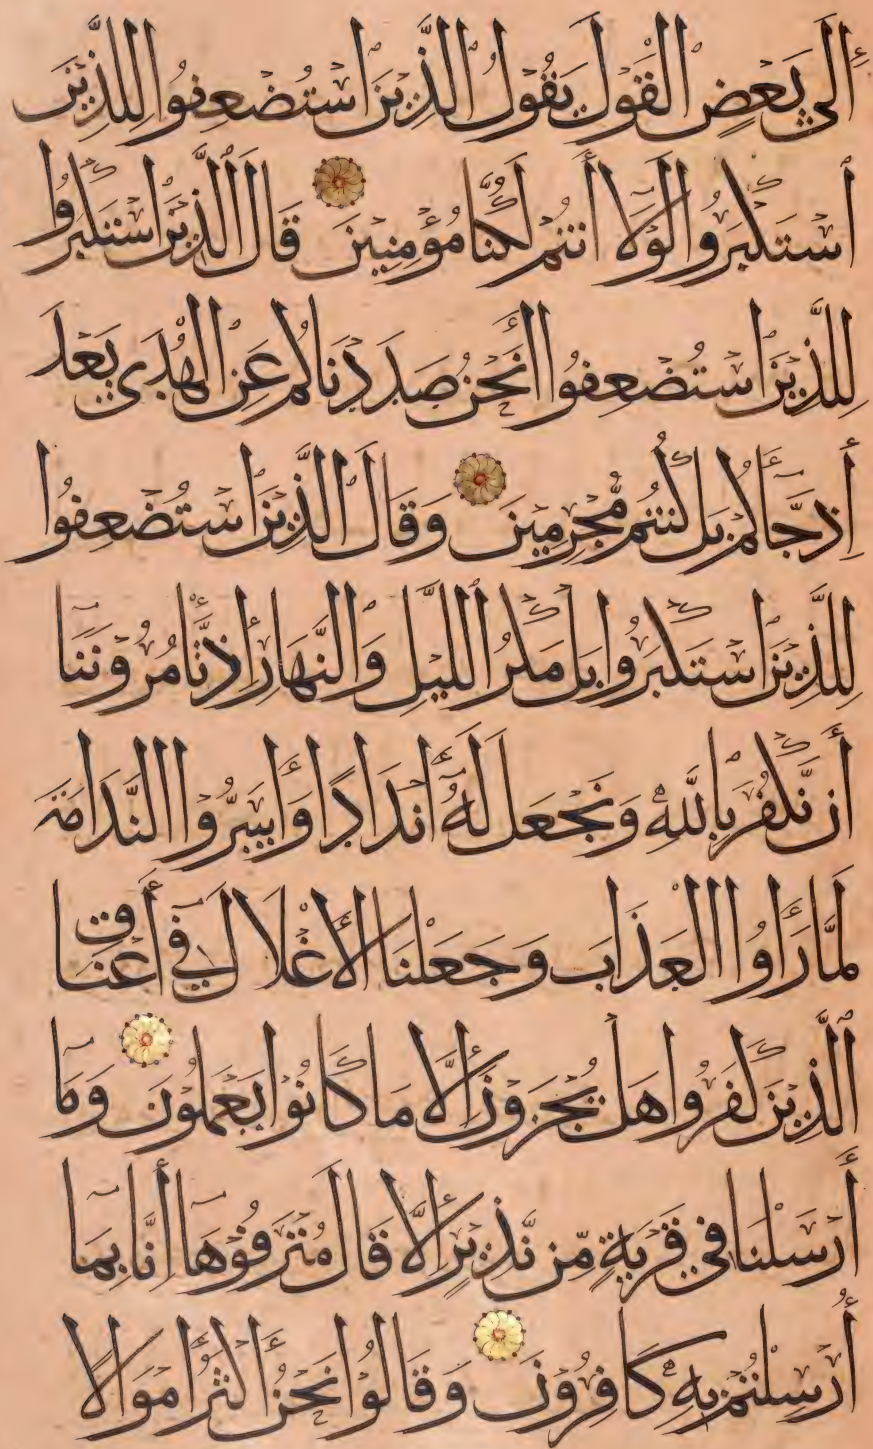 إِلَىٰ بَعْضٍ الْقَوْلَ يَقُولُ الَّذِينَ اسْتُضْعِفُوا لِلَّذِينَ
اسْتَكْبَرُوا لَوْلَا أَنتُمْ لَكُنَّا مُؤْمِنِينَ قَالَ الَّذِينَ اسْتَكْبَرُوا
لِلَّذِينَ اسْتُضْعِفُوا أَنَحْنُ صَدَدْنَاكُمْ عَنِ الْهُدَىٰ بَعْدَ
إِذْ جَاءَكُم بَلْ كُنتُم مُّجْرِمِينَ وَقَالَ الَّذِينَ اسْتُضْعِفُوا
لِلَّذِينَ اسْتَكْبَرُوا بَلْ مَكْرُ اللَّيْلِ وَالنَّهَارِ إِذْ تَأْمُرُونَنَا
أَن نَّكْفُرَ بِاللَّهِ وَنَجْعَلَ لَهُ أَندَادًا وَأَسَرُّوا النَّدَامَةَ
لَمَّا رَأَوُا الْعَذَابَ وَجَعَلْنَا الْأَغْلَالَ فِي أَعْنَاقِ
الَّذِينَ كَفَرُوا هَلْ يُجْزَوْنَ إِلَّا مَا كَانُوا يَعْمَلُونَ وَمَا
أَرْسَلْنَا فِي قَرْيَةٍ مِّن نَّذِيرٍ إِلَّا قَالَ مُتْرَفُوهَا إِنَّا بِمَا
أُرْسِلْتُم بِهِ كَافِرُونَ وَقَالُوا نَحْنُ أَكْثَرُ أَمْوَالًا